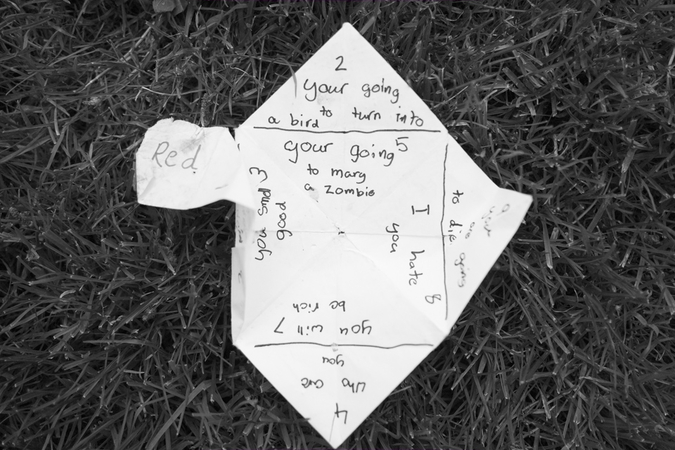 2
your going
to turn into
a bird
your going 5
to mary
a Zombie
Red
3
you
good
I hate 8
you
to die
you will 7
be rich
4
who are
you